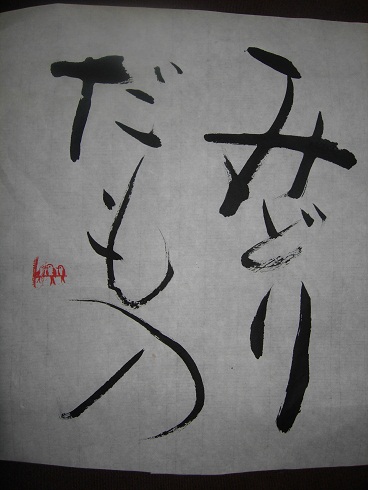 みどり
だもの